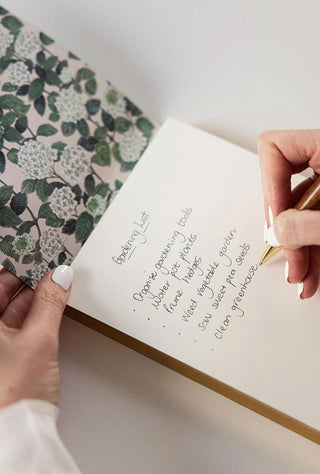 Gardening List
· Organise gardening tools
· Water pot plants
· Prune hedges
· Weed vegetable garden
· Sow sweet pea seeds
· Clean greenhouse